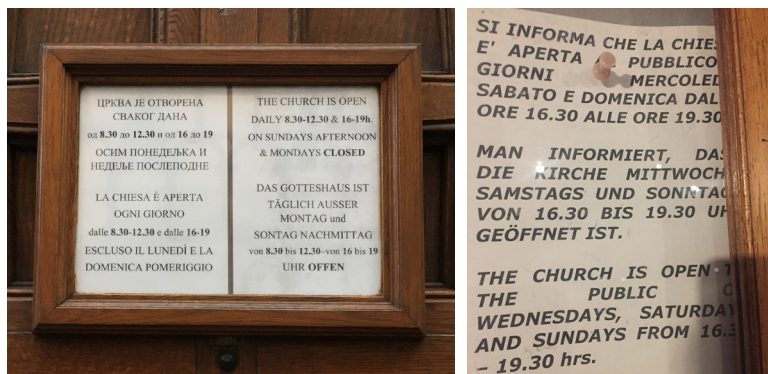 ЦРКВА ЈЕ ОТВОРЕНА
СВАКОГ ДАНА
од 8.30 до 12.30 и од 16 до 19
ОСИМ ПОНЕДЕЉКА И
НЕДЕЉЕ ПОСЛЕПОДНЕ
LA CHIESA È APERTA
OGNI GIORNO
dalle 8.30-12.30 e dalle 16-19
ESCLUSO IL LUNEDÌ E LA
DOMENICA POMERIGGIO
THE CHURCH IS OPEN
DAILY 8.30-12.30 & 16-19h.
ON SUNDAYS AFTERNOON
& MONDAYS CLOSED
DAS GOTTESHAUS IST
TÄGLICH AUSSER
MONTAG und
SONTAG NACHMITTAG
von 8.30 bis 12.30–von 16 bis 19
UHR OFFEN
SI INFORMA CHE LA
E' APERTA PUBBLICO
GIORNI
SABATO E DOMENICA
ORE 16.30 ALLE ORE 19.30
MAN INFORMIERT,
DIE KIRCHE MITTWOCH
SAMSTAGS UND
VON 16.30 BIS 19.30
GEÖFFNET IST.
THE CHURCH IS OPEN
THE PUBLIC
WEDNESDAYS,
AND SUNDAYS FROM
– 19.30 hrs.